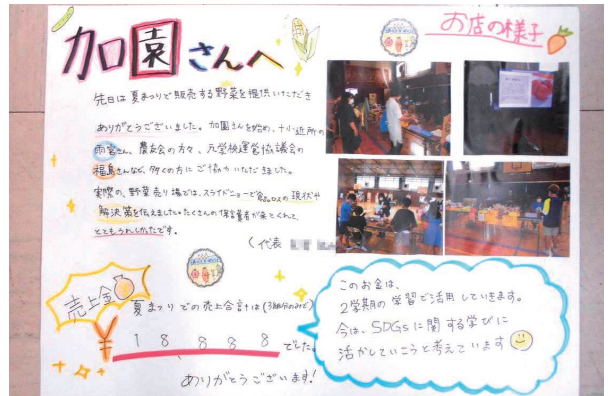 加園さんへ
お店の様子
先日は夏まつりで販売する野菜を提供いただき
ありがとうございました。加園さんを始め、十小近所の
雨宮さん、農友会の方々、元学校運営協議会の
福島さんなど、多くの方にご協力いただきました。
実際の、野菜売り場では、スライドショーで食品ロスの現状や
解決策を伝えました。たくさんの保護者が来てくれて、
とてもうれしかったです。
(代表
売上金
夏まつりでの売上合計は(3組分のみで)
¥18,888でした。
ありがとうございます!
このお金は、
2学期の学習で活用していきます。
今は、SDGsに関する学びに
活かしていこうと考えています